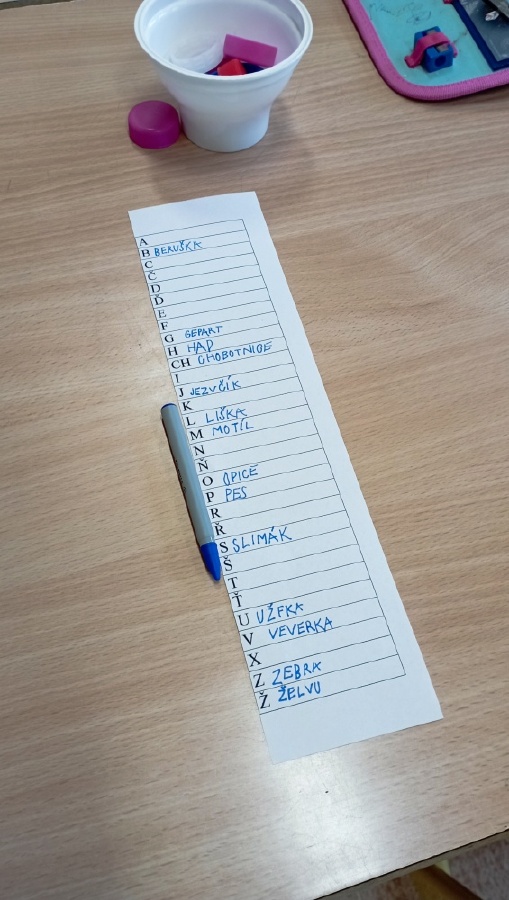 A
B BERUŠKA
C
Č
D
Ď
E
F
G GEPART
H HAD
CH CHOBOTNICE
I
J JEZVČÍK
K
L LIŠKA
M MOTÍL
N
Ň
O OPICE
P PES
R
Ř
S SLIMÁK
Š
T
Ť
U UŽFKA
V VEVERKA
X
Z ZEBRA
Ž ŽELVU